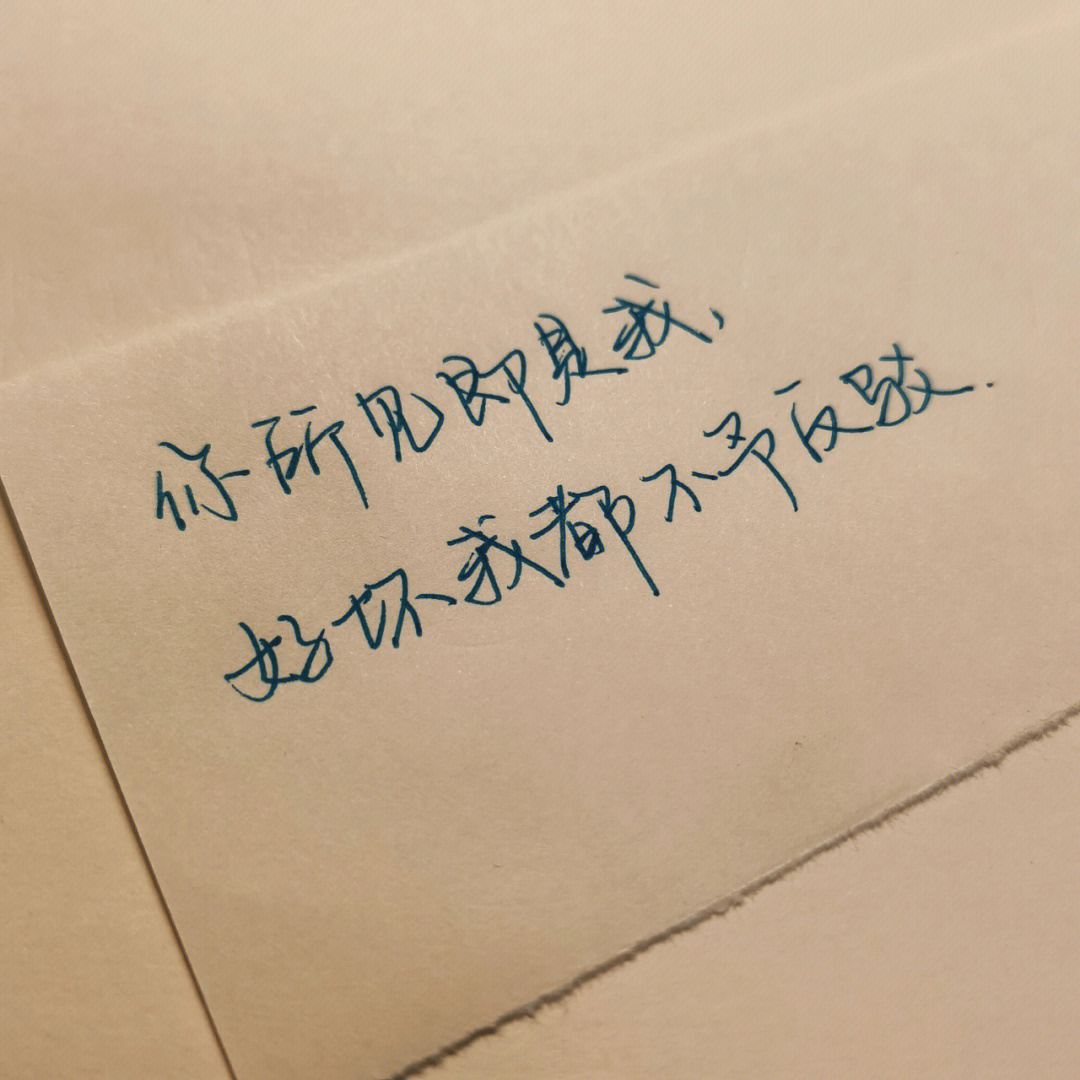 你所见即是我、
好坏我都不予反驳.